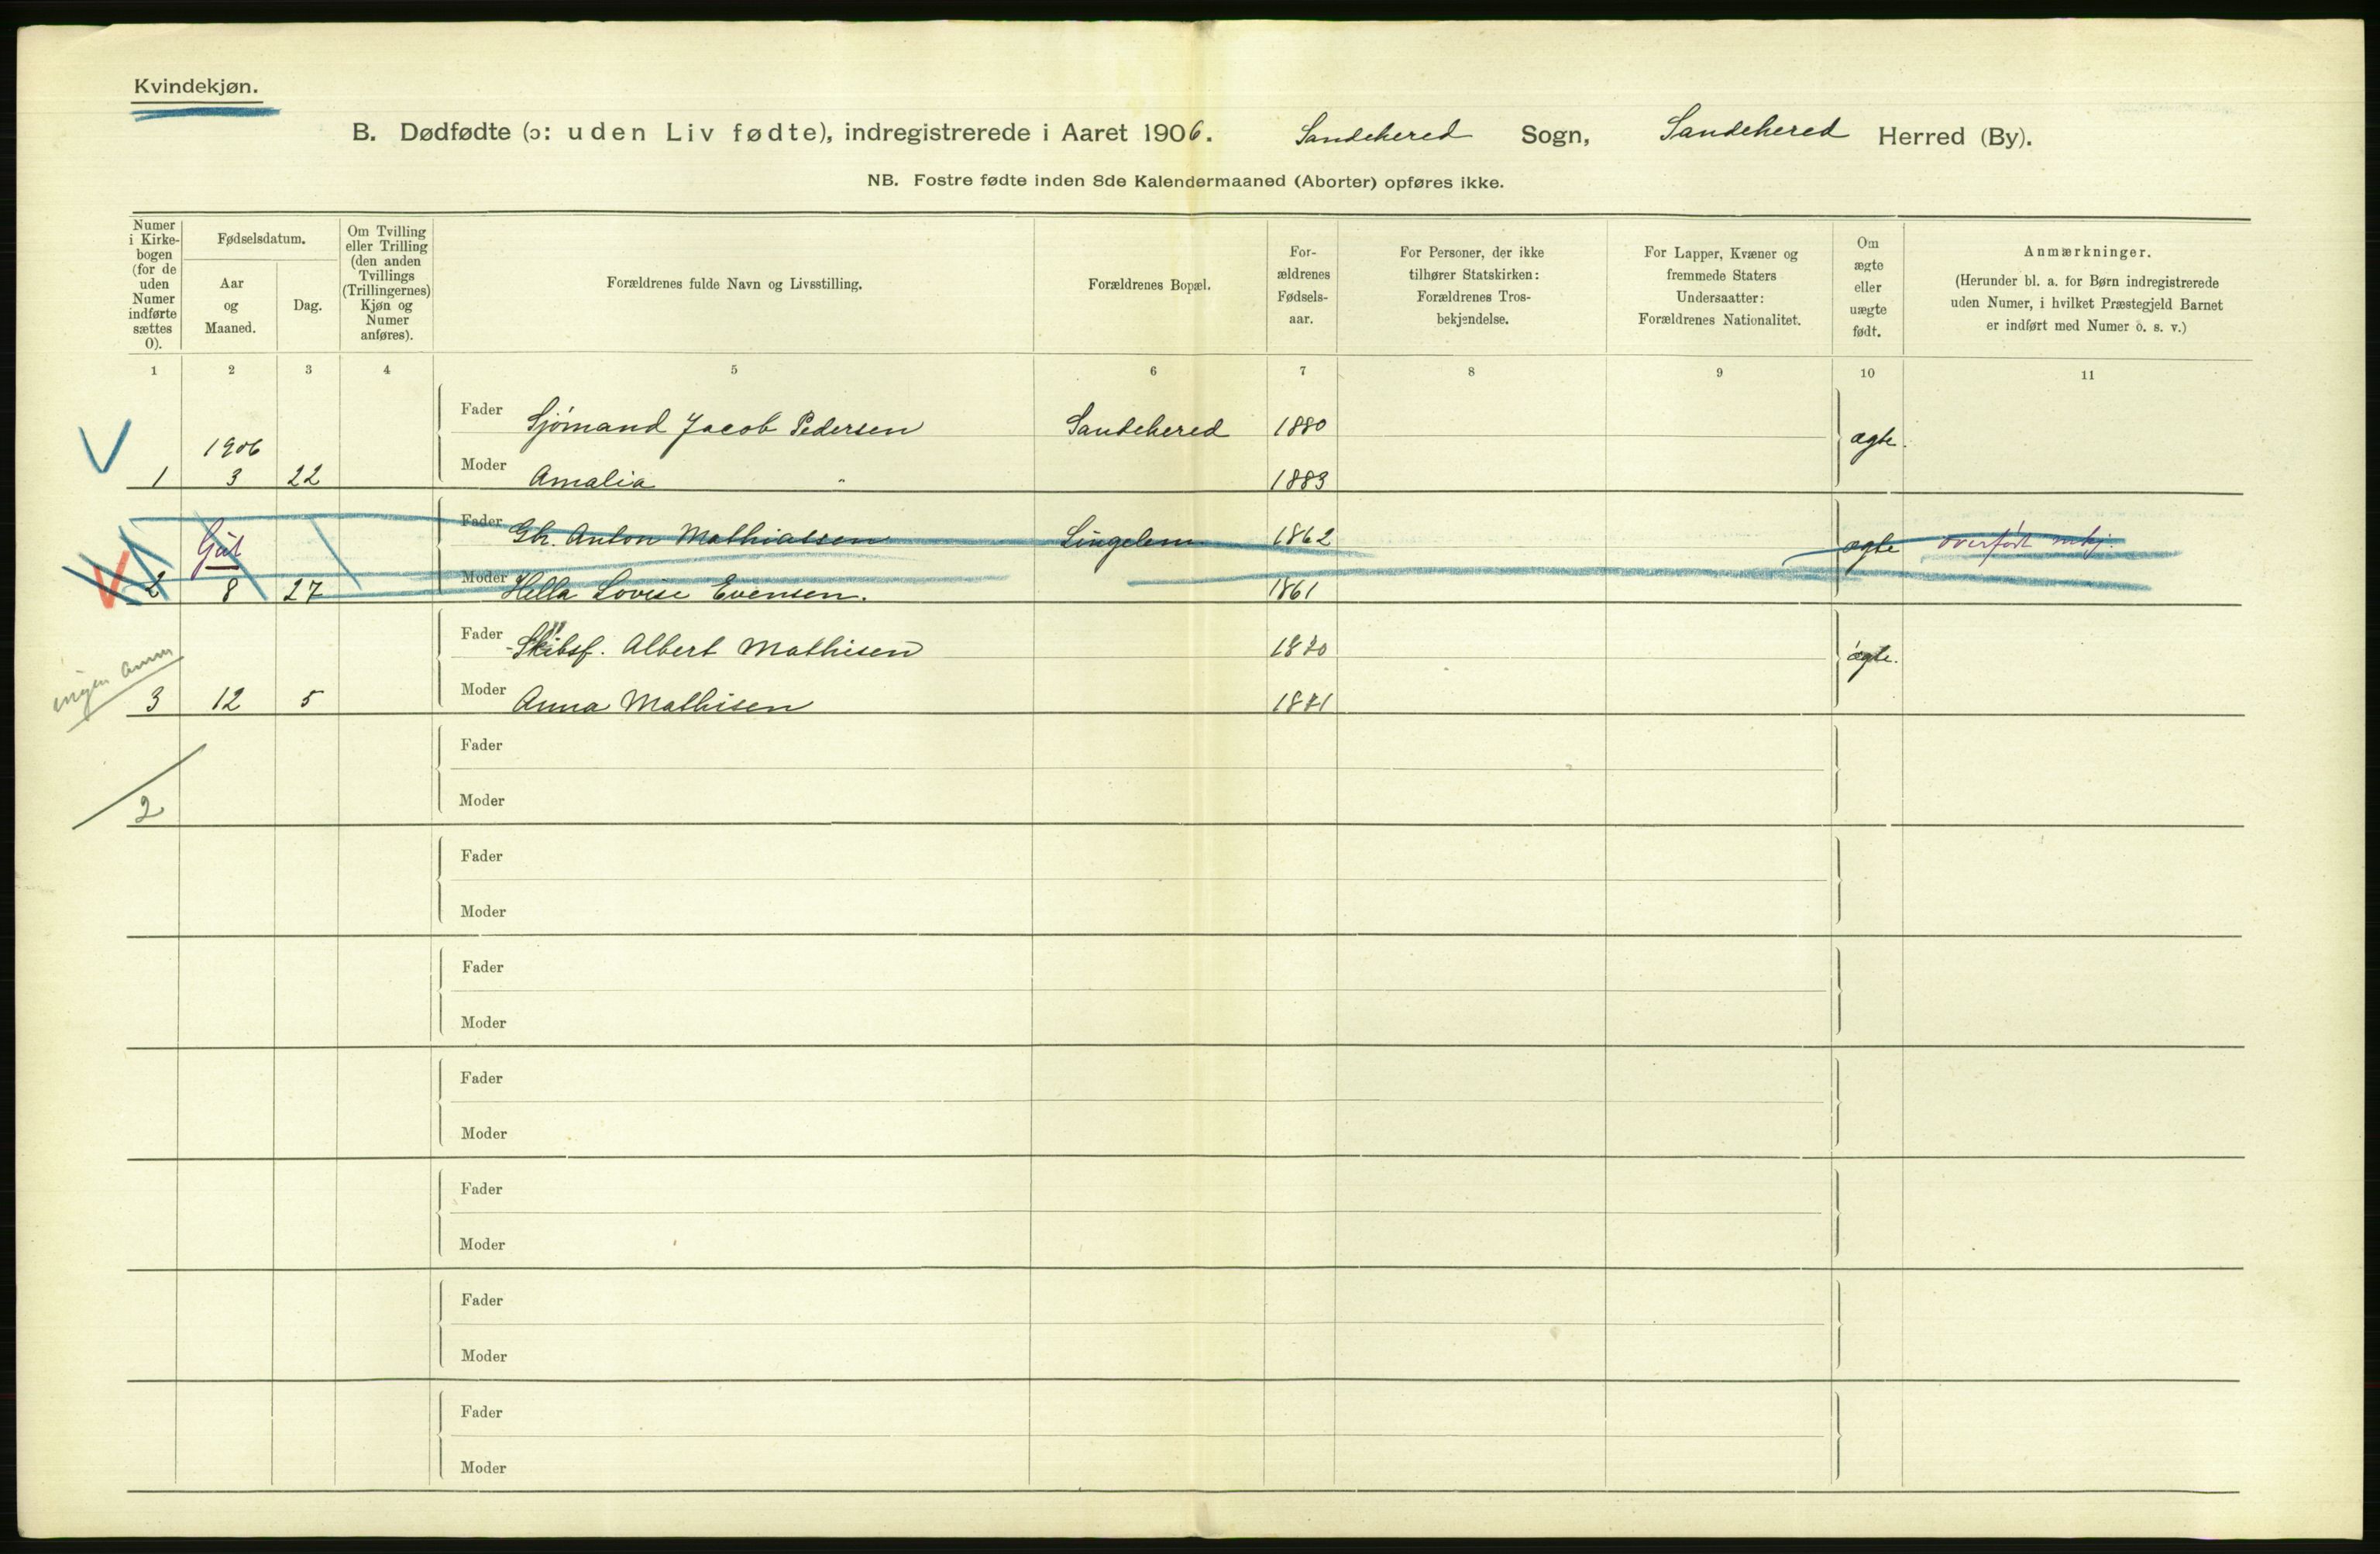 Kvindekjøn.
B. Dødfødte (ɔ: uden Liv fødte), indregistrerede i Aaret 1906. Sandehered Sogn, Sandehered Herred (By).
NB. Fostre fødte inden 8de Kalendermaaned (Aborter) opføres ikke.
Numer i Kirkebogen (for de uden Numer indførte sættes 0).
Fødselsdatum.
Aar og Maaned.
Dag.
Om Tvilling eller Trilling (den anden Tvillings (Trillingernes) Kjøn og Numer anføres).
Forældrenes fulde Navn og Livsstilling.
Forældrenes Bopæl.
For-ældrenes Fødsels-aar.
For Personer, der ikke tilhører Statskirken: Forældrenes Tros-bekjendelse.
For Lapper, Kvæner og fremmede Staters Undersaatter: Forældrenes Nationalitet.
Om ægte eller uægte født.
Anmærkninger.
(Herunder bl. a. for Børn indregistrerede uden Numer, i hvilket Præstegjeld Barnet er indført med Numer o. s. v.)
1 2 3 4 5 6 7 8 9 10 11
Fader Sjømand Jacob Pedersen Sandehered 1880 ægte.
1906
1 3 22 Moder Amalia " 1883
Gut
Fader Gbr. Anton Mathiassen Lingelem 1862 ægte overført mkj.
2 8 27 Moder Hella Lovise Evensen. 1861
Fader Skibsf. Albert Mathisen 1870 ægte.
ingen anm
3 12 5 Moder Anna Mathisen 1871
Fader
2 Moder
Fader
Moder
Fader
Moder
Fader
Moder
Fader
Moder
Fader
Moder
Fader
Moder